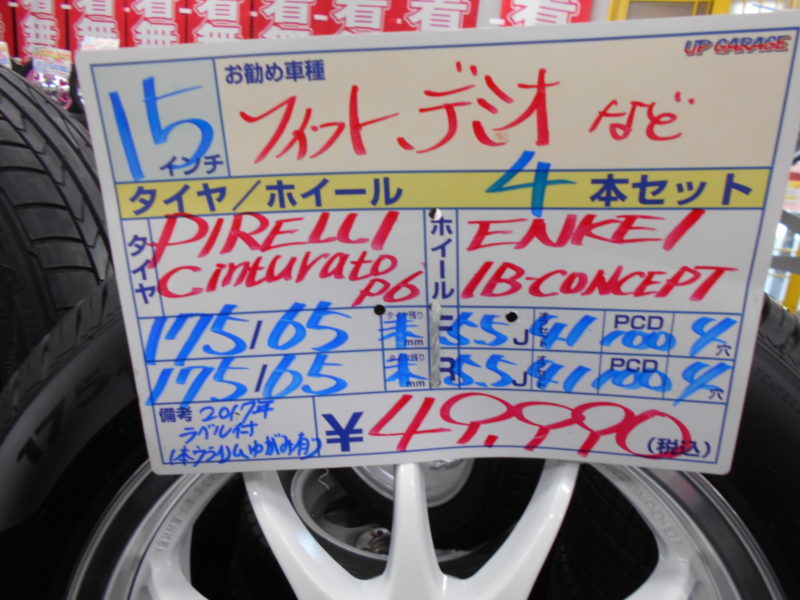 UP GARAGE
15 インチ
お勧め車種
フィット、デミオ など
タイヤ/ホイール 4 本セット
タイヤ PIRELLI Cinturato P6
ホイール ENKEI 1B-CONCEPT
175/65 タイヤ残り mm 5.5 J 41 PCD 100 4 穴
175/65 タイヤ残り mm R 5.5 J 41 PCD 100 4 穴
備考 2017年
ラベル付
¥49,990 (税込)